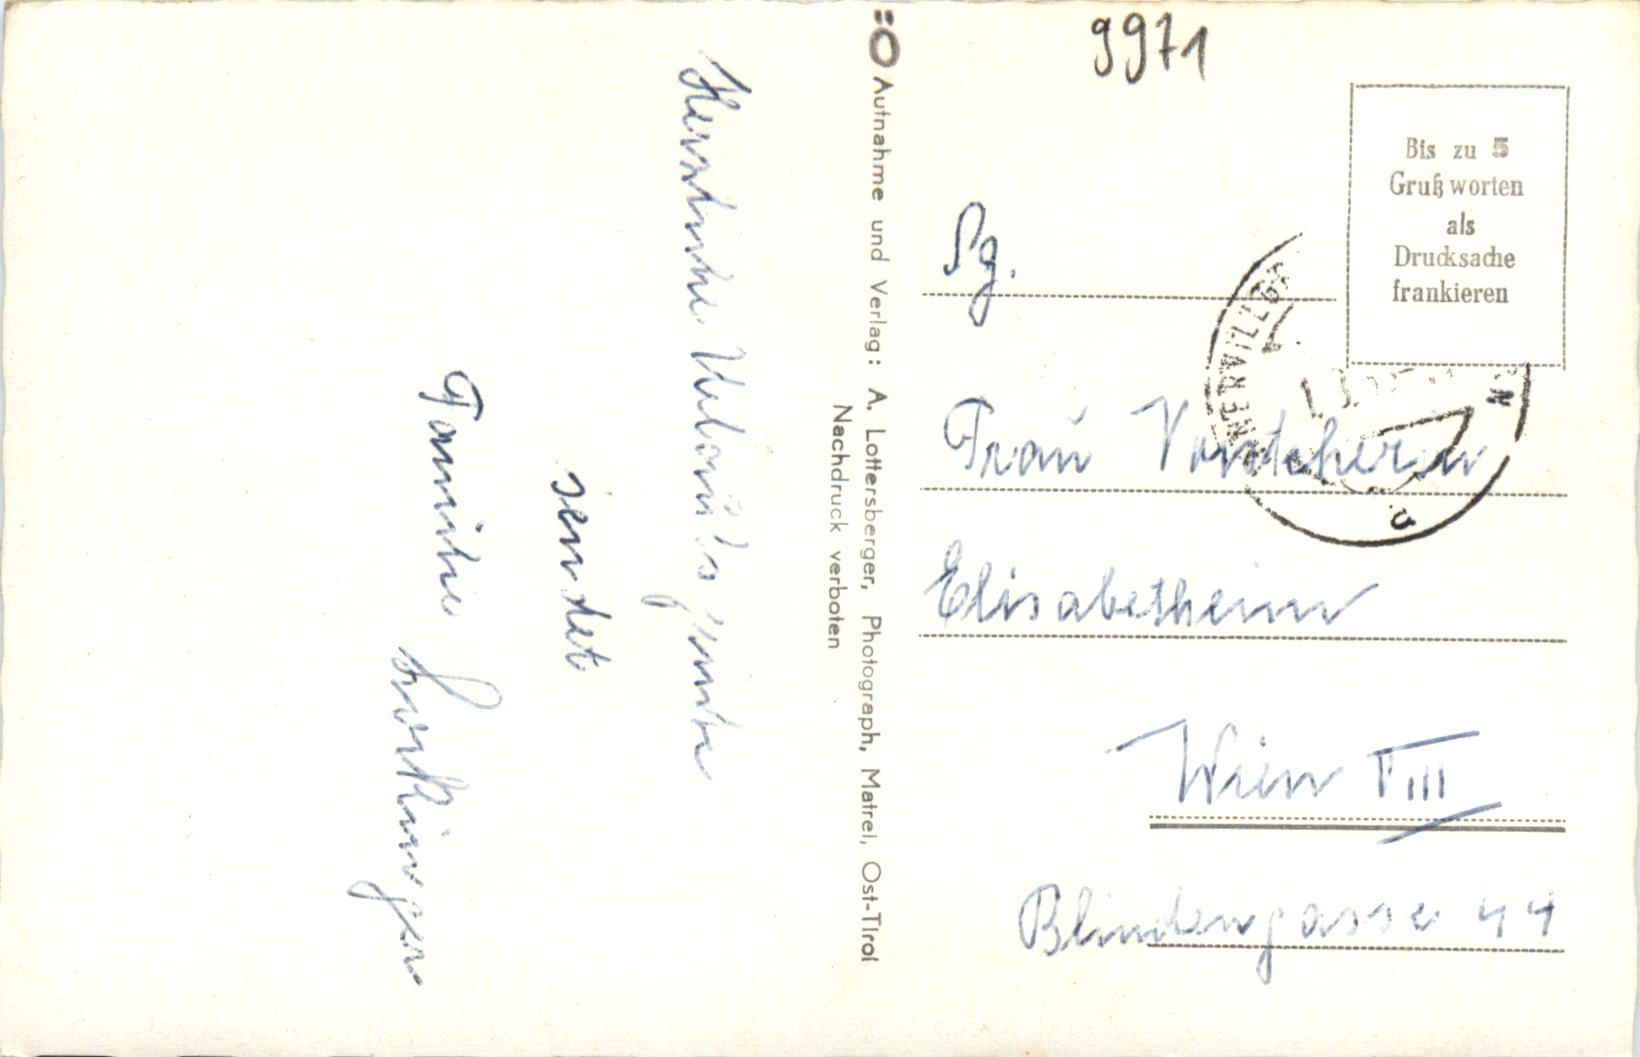 9971
Bis zu 5
Gruß worten
als
Drucksache
frankieren
Aufnahme und Verlag: A. Lottersberger, Photograph, Matrei, Ost-Tirol
Nachdruck verboten
Herzliche Urlaubsgrüsse
sendet
Familie
Sg.
Frau
Elisabetheim
Wien VIII
Blindengasse 44